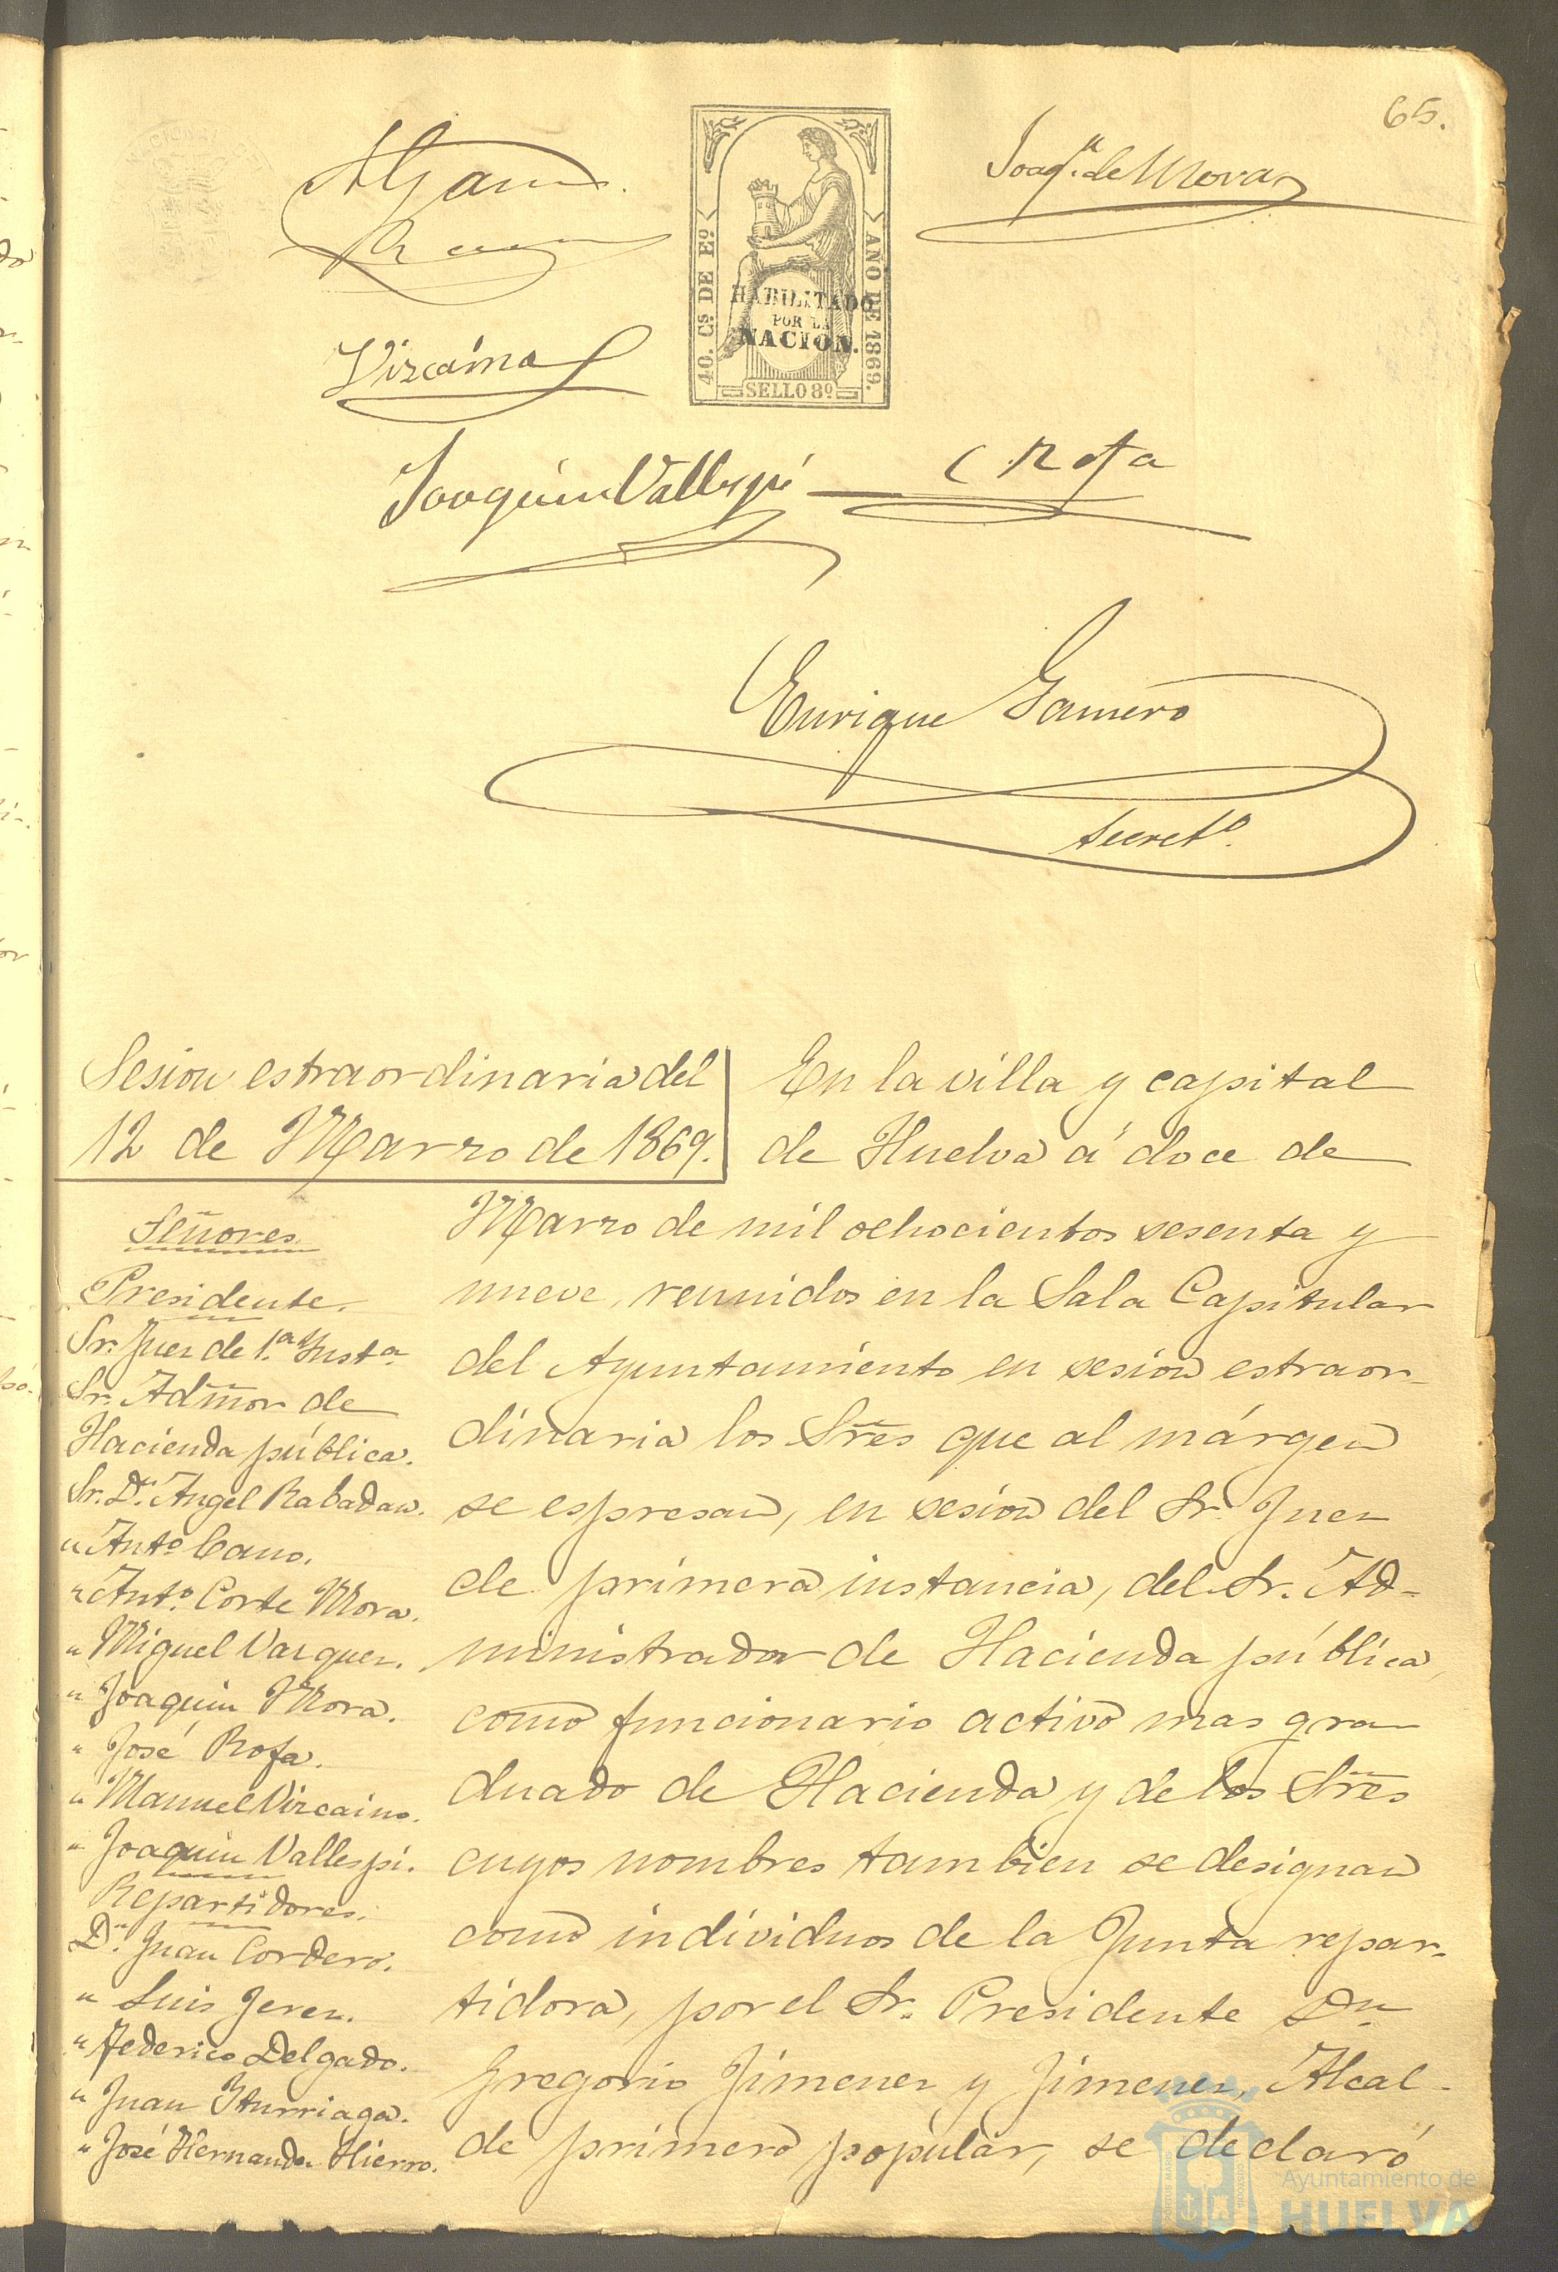 65.
Joaqn. de Mora
40. Cs. DE Eo.
AÑO DE 1869.
HABILITADO
POR LA
NACION.
SELLO 8º
Vizcaino
Joaquin Vallespi
Rofa
Enrique Gamero
Secretº.
Sesion estraordinaria del
12 de Marzo de 1869.
Señores.
Presidente.
Sr. Juez de 1.ª Instª.
Sr. Admor de
Hacienda pública.
Sr. Dn. Angel Rabadan.
" Antº Cano.
" Antº. Corte Mora.
" Miguel Vazquez.
" Joaquin Mora.
" José Rofa.
" Manuel Vizcaino.
" Joaquin Vallespi.
Repartidores.
Dn. Juan Cordero.
" Luis Jerez.
" Federico Delgado.
" Juan Yturriaga.
" José Hernandez Hierro.
En la villa y capital
de Huelva á doce de
Marzo de mil ochocientos sesenta y
nueve, reunidos en la Sala Capitular
del Ayuntamiento en sesion estraor-
dinaria los Sres que al márgen
se espresan, en sesion del Sr. Juez
de primera instancia, del Sr. Ad-
ministrador de Hacienda pública,
como funcionario activo mas gra
duado de Hacienda y de los Sres
cuyos nombres tambien se designan
como individuos de la Junta repar-
tidora, por el Sr. Presidente Dn
Gregorio Jimenez y Jimenez, Alcal-
de primero popular, se declaró
Ayuntamiento de
HUELVA